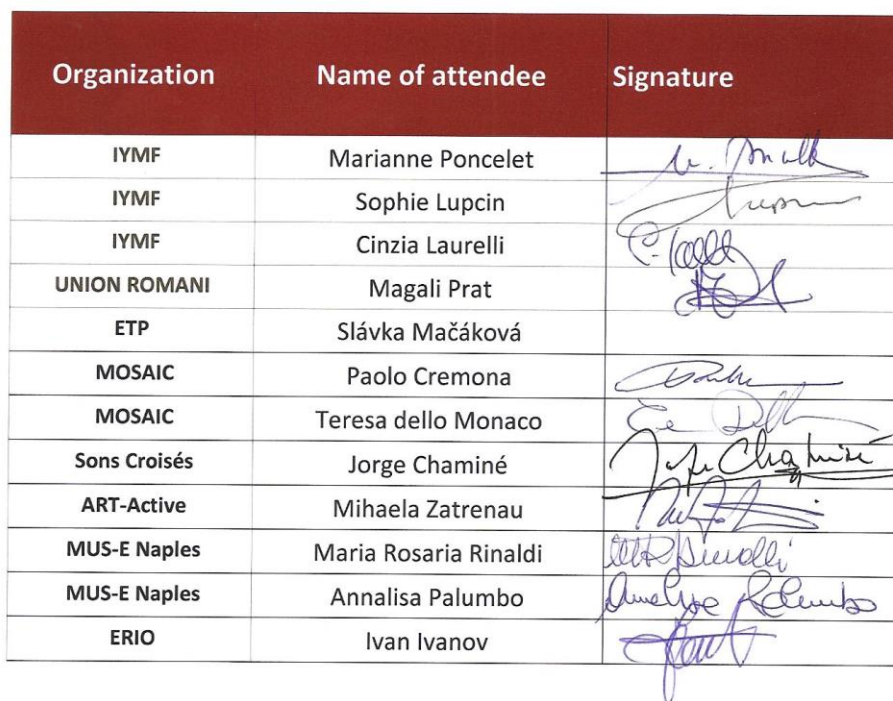 Organization Name of attendee Signature
IYMF Marianne Poncelet
IYMF Sophie Lupcin
IYMF Cinzia Laurelli
UNION ROMANI Magali Prat
ETP Slávka Mačáková
MOSAIC Paolo Cremona
MOSAIC Teresa dello Monaco
Sons Croisés Jorge Chaminé Jorge Chaminé
ART-Active Mihaela Zatrenau
MUS-E Naples Maria Rosaria Rinaldi MR Rinaldi
MUS-E Naples Annalisa Palumbo Annalisa Palumbo
ERIO Ivan Ivanov